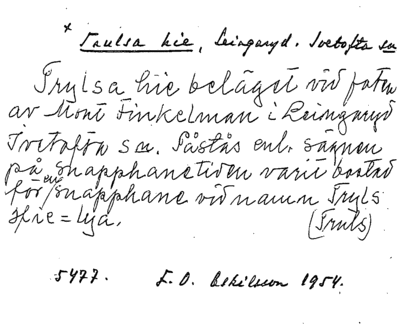 × Traulsa hie, Leingaryd. Ivetofta sn
Trylsa hie beläget vid foten
av Mont Finkelman i Leingaryd
Ivetofta sn. Påstås enl. sägnen
på snapphanetiden varit bostad
för en snapphane vid namn Tryls
Hie = lya. (Truls)
5477. E. O. Eskilsson 1954.